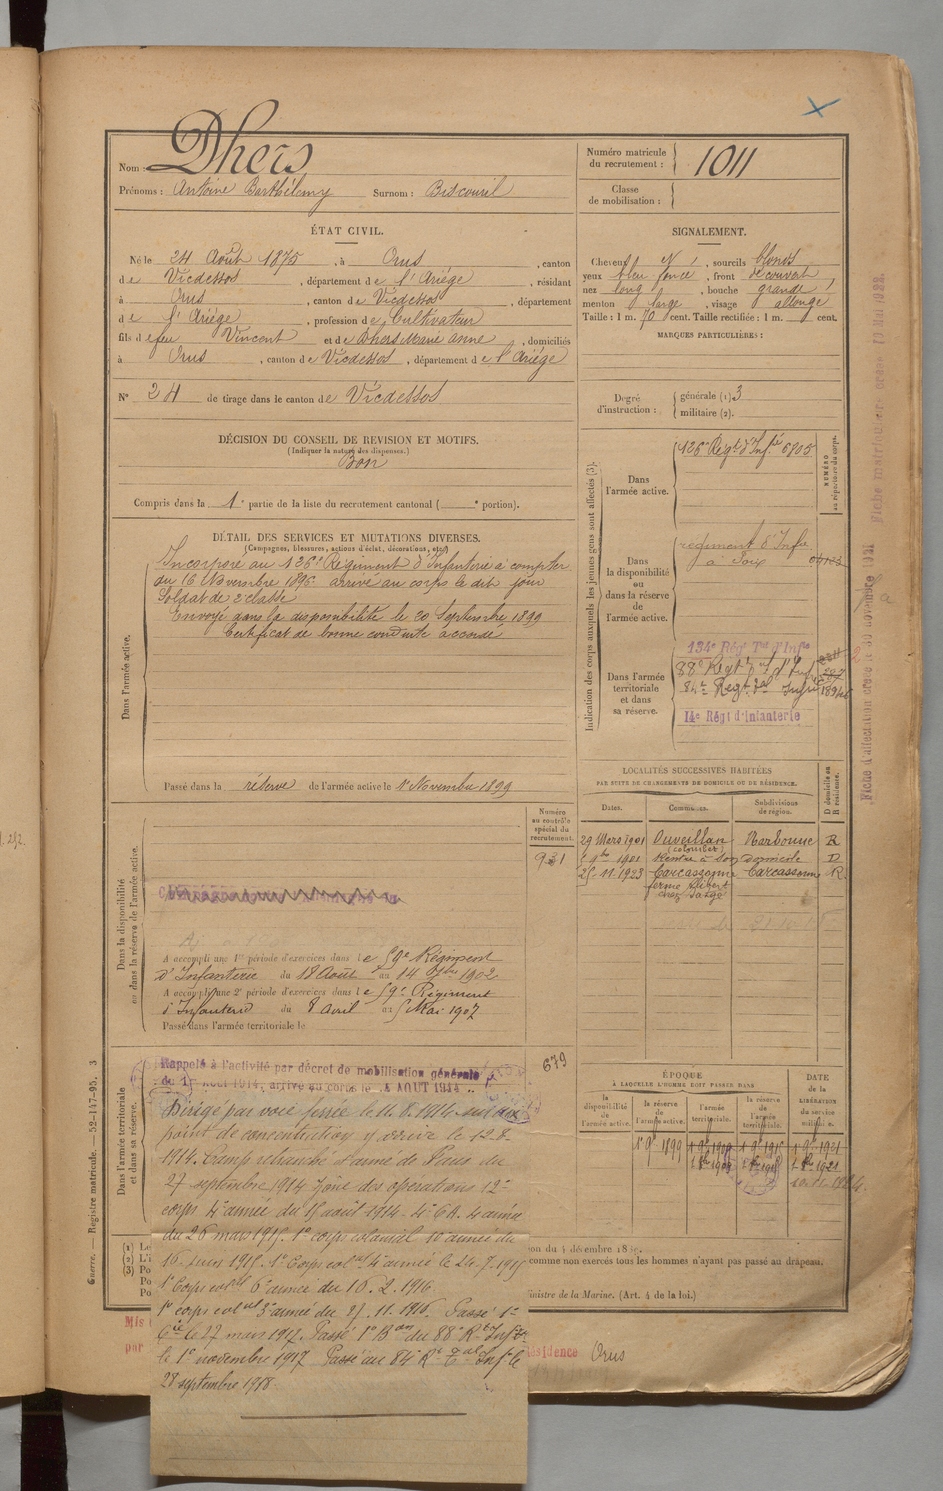 Nom : Dhers
Prénoms : Antoine Barthélemy Surnom : Biscouril
Numéro matricule du recrutement : 1011
Classe de mobilisation :
ÉTAT CIVIL.
Né le 24 Août 1875, à Orus, canton
de Vicdessos, département de l'Ariège, résidant
à Orus, canton de Vicdessos, département
de l'Ariège, profession de Cultivateur
fils de feu Vincent et de Dhers Marie Anne, domiciliés
à Orus, canton de Vicdessos, département de l'Ariège
N° 24 de tirage dans le canton de Vicdessos
DÉCISION DU CONSEIL DE REVISION ET MOTIFS.
(Indiquer la nature des dispenses.)
Bon
Compris dans la 1e partie de la liste du recrutement cantonal ( e portion).
SIGNALEMENT.
Cheveux, sourcils blonds
yeux bleu foncé, front découvert
nez long, bouche grande
menton large, visage allongé
Taille : 1 m. 70 cent. Taille rectifiée : 1 m. cent.
MARQUES PARTICULIÈRES :
Degré d'instruction : générale (1) 3
militaire (2).
DÉTAIL DES SERVICES ET MUTATIONS DIVERSES.
(Campagnes, blessures, actions d'éclat, décorations, etc.)
Dans l'armée active.
Incorporé au 126e Régiment d'Infanterie à compter
du 16 Novembre 1896 arrivé au corps le dit jour
Soldat de 2e classe
Envoyé dans la disponibilité le 20 Septembre 1899
Certificat de bonne conduite accordé
Passé dans la réserve de l'armée active le 1er Novembre 1899
Indication des corps auxquels les jeunes gens sont affectés (3).
NUMÉRO au répertoire du corps.
Dans l'armée active.
126e Régt d'Infie 6705
Dans la disponibilité ou dans la réserve de l'armée active.
régiment d'Infie
à Foix
Dans l'armée territoriale et dans sa réserve.
134e Rég Tal d'Infie
88e Régt tal d'Inf
84e Régt tal Infie
14e Régt d'Infanterie
Fiche matriculaire créée 10 Mai 1922.
Fiche d'affectation créée le 30 novembre 1921
LOCALITÉS SUCCESSIVES HABITÉES
PAR SUITE DE CHANGEMENTS DE DOMICILE OU DE RÉSIDENCE.
Dates. Communes. Subdivisions de région. D domicile ou R résidence.
29 Mars 1901 Ouveillan Narbonne R
1901 Rentré à son domicile D
25.11.1923 Carcassonne Carcassonne R
Numéro au contrôle spécial du recrutement.
931
Dans la disponibilité ou dans la réserve de l'armée active.
A accompli une 1re période d'exercices dans le 59e Régiment
d'Infanterie du 18 Août au 14 7bre 1902
A accompli une 2e période d'exercices dans le 59e Régiment
d'Infanterie du 8 avril au 5 Mai 1907
Passé dans l'armée territoriale le
679
Dans l'armée territoriale et dans sa réserve.
Rappelé à l'activité par décret de mobilisation générale
du 1er Août 1914, arrivé au corps le 4 AOUT 1914
Dirigé par voie ferrée le 11.8.1914 sur son
point de concentration y arrivé le 12-8-
1914. Camp retranché d'armé de Paris du
27 septembre 1914 Zône des opérations 12e
corps 4e armée du 15 août 1914 - 4e C.A. 4 armée
du 26 mars 1915. 1er corps colonial 10 armée du
16 juin 1915. 1er Corps colal 4e armée le 24-7-1915
1er Corps colal 6e armée du 10.2.1916
1er corps colal 3e armée du 21.11.1916. Passé 1e
Cie le 27 mars 1917. Passé 1er Bon du 88e Rt Infie
le 1er novembre 1917 Passé au 84e Rt Tal Infie le
28 septembre 1918.
ÉPOQUE
À LAQUELLE L'HOMME DOIT PASSER DANS
la disponibilité de l'armée active. la réserve de l'armée active. l'armée territoriale. la réserve de l'armée territoriale.
DATE de la LIBÉRATION du service militaire.
1er 9bre 1899 1er 9bre 1909 1er 9bre 1915 1er 9bre 1921
1er 8bre 1909 1er 8bre 1915 1er 8bre 1921
Guerre. — Registre matricule. — 52-147-95. 3
(1) Le
(2) L'i
(3) Po
Po
Po
comme non exercés tous les hommes n'ayant pas passé au drapeau.
Ministre de la Marine. (Art. 4 de la loi.)
Mis
par
résidence Orus